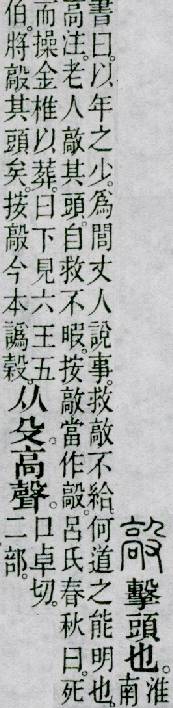 毃擊頭也。淮
南
書曰。以年之少。爲閭丈人說事。救敲不給。何道之能明也。
高注。老人敲其頭。自救不暇。按敲當作毃。呂氏春秋曰。死
而操金椎以葬。曰下見六王五
伯。將毃其頭矣。按毃今本譌穀。
从殳。高聲。口卓切。
二部。